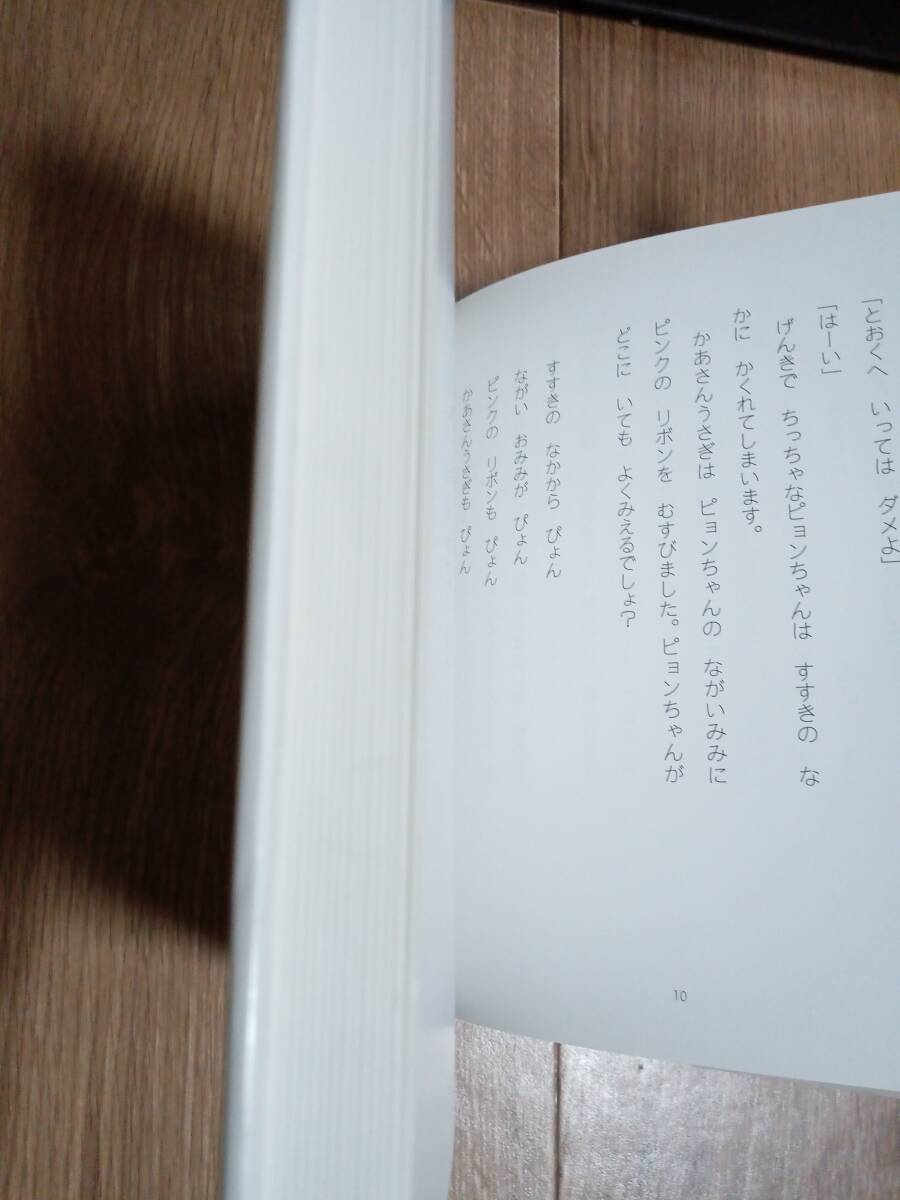 「とおくへ いっては ダメよ」
「はーい」
げんきで ちっちゃなピョンちゃんは すすきの な
かに かくれてしまいます。
かあさんうさぎは ピョンちゃんの ながいみみに
ピンクの リボンを むすびました。ピョンちゃんが
どこに いても よくみえるでしょ?
すすきの なかから ぴょん
ながい おみみが ぴょん
ピンクの リボンも ぴょん
かあさんうさぎも ぴょん
10